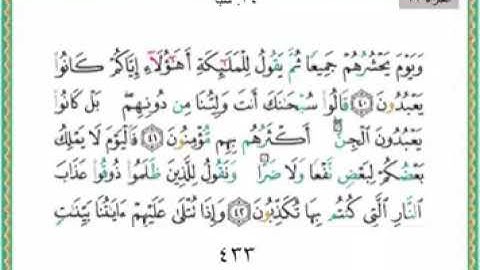 ٣٤. سَبَإ
وَيَوْمَ يَحْشُرُهُمْ جَمِيعًا ثُمَّ يَقُولُ لِلْمَلَٰٓئِكَةِ أَهَٰٓؤُلَآءِ إِيَّاكُمْ كَانُوا۟
يَعْبُدُونَ ٤٠ قَالُوا۟ سُبْحَٰنَكَ أَنتَ وَلِيُّنَا مِن دُونِهِم ۖ بَلْ كَانُوا۟
يَعْبُدُونَ ٱلْجِنَّ ۖ أَكْثَرُهُم بِهِم مُّؤْمِنُونَ ٤١ فَٱلْيَوْمَ لَا يَمْلِكُ
بَعْضُكُمْ لِبَعْضٍ نَّفْعًا وَلَا ضَرًّا وَنَقُولُ لِلَّذِينَ ظَلَمُوا۟ ذُوقُوا۟ عَذَابَ
ٱلنَّارِ ٱلَّتِى كُنتُم بِهَا تُكَذِّبُونَ ٤٢ وَإِذَا تُتْلَىٰ عَلَيْهِمْ ءَايَٰتُنَا بَيِّنَٰتٍ
٤٣٣